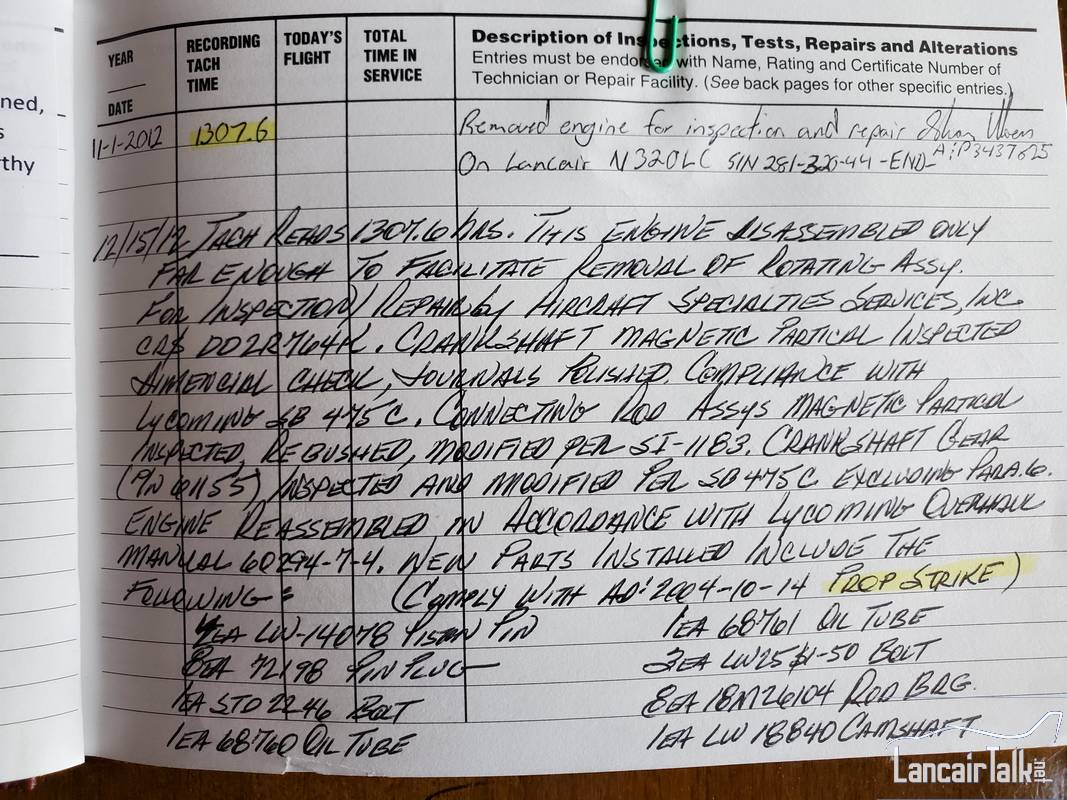 ned,
s
rthy
YEAR
DATE
RECORDING TACH TIME
TODAY'S FLIGHT
TOTAL TIME IN SERVICE
Description of Inspections, Tests, Repairs and Alterations
Entries must be endorsed with Name, Rating and Certificate Number of
Technician or Repair Facility. (See back pages for other specific entries.)
11-1-2012 1307.6 Removed engine for inspection and repair
On Lancair N320LC S/N 281-320-44 -END- A&P3437625
12/15/12 TACH READS 1307.6 HRS. THIS ENGINE DISASSEMBLED ONLY
FAR ENOUGH TO FACILITATE REMOVAL OF ROTATING ASSY.
FOR INSPECTION/REPAIR by AIRCRAFT SPECIALTIES SERVICES, INC
CRS DD2R764K. CRANKSHAFT MAGNETIC PARTICAL INSPECTED
DIMENCIAL CHECK, JOURNALS POLISHED. COMPLIANCE WITH
LYCOMING SB 475C. CONNECTING ROD ASSYS MAGNETIC PARTICAL
INSPECTED, REBUSHED, MODIFIED PER SI-1183. CRANKSHAFT GEAR
(P/N 61155), INSPECTED AND MODIFIED PER SB475C EXCLUDING PARA.6.
ENGINE REASSEMBLED IN ACCORDANCE WITH LYCOMING OVERHAUL
MANUAL 60294-7-4. NEW PARTS INSTALLED INCLUDE THE
FOLLOWING: (COMPLY WITH AD: 2004-10-14 PROP STRIKE)
4EA LW-14078 PISTON PIN 1EA 68761 OIL TUBE
8EA 72198 PIN PLUG 2EA BOLT
1EA STD 2246 BOLT 8EA 18M26104 ROD BRG.
1EA 68760 OIL TUBE 1EA LW 18840 CAMSHAFT
LancairTalk.net